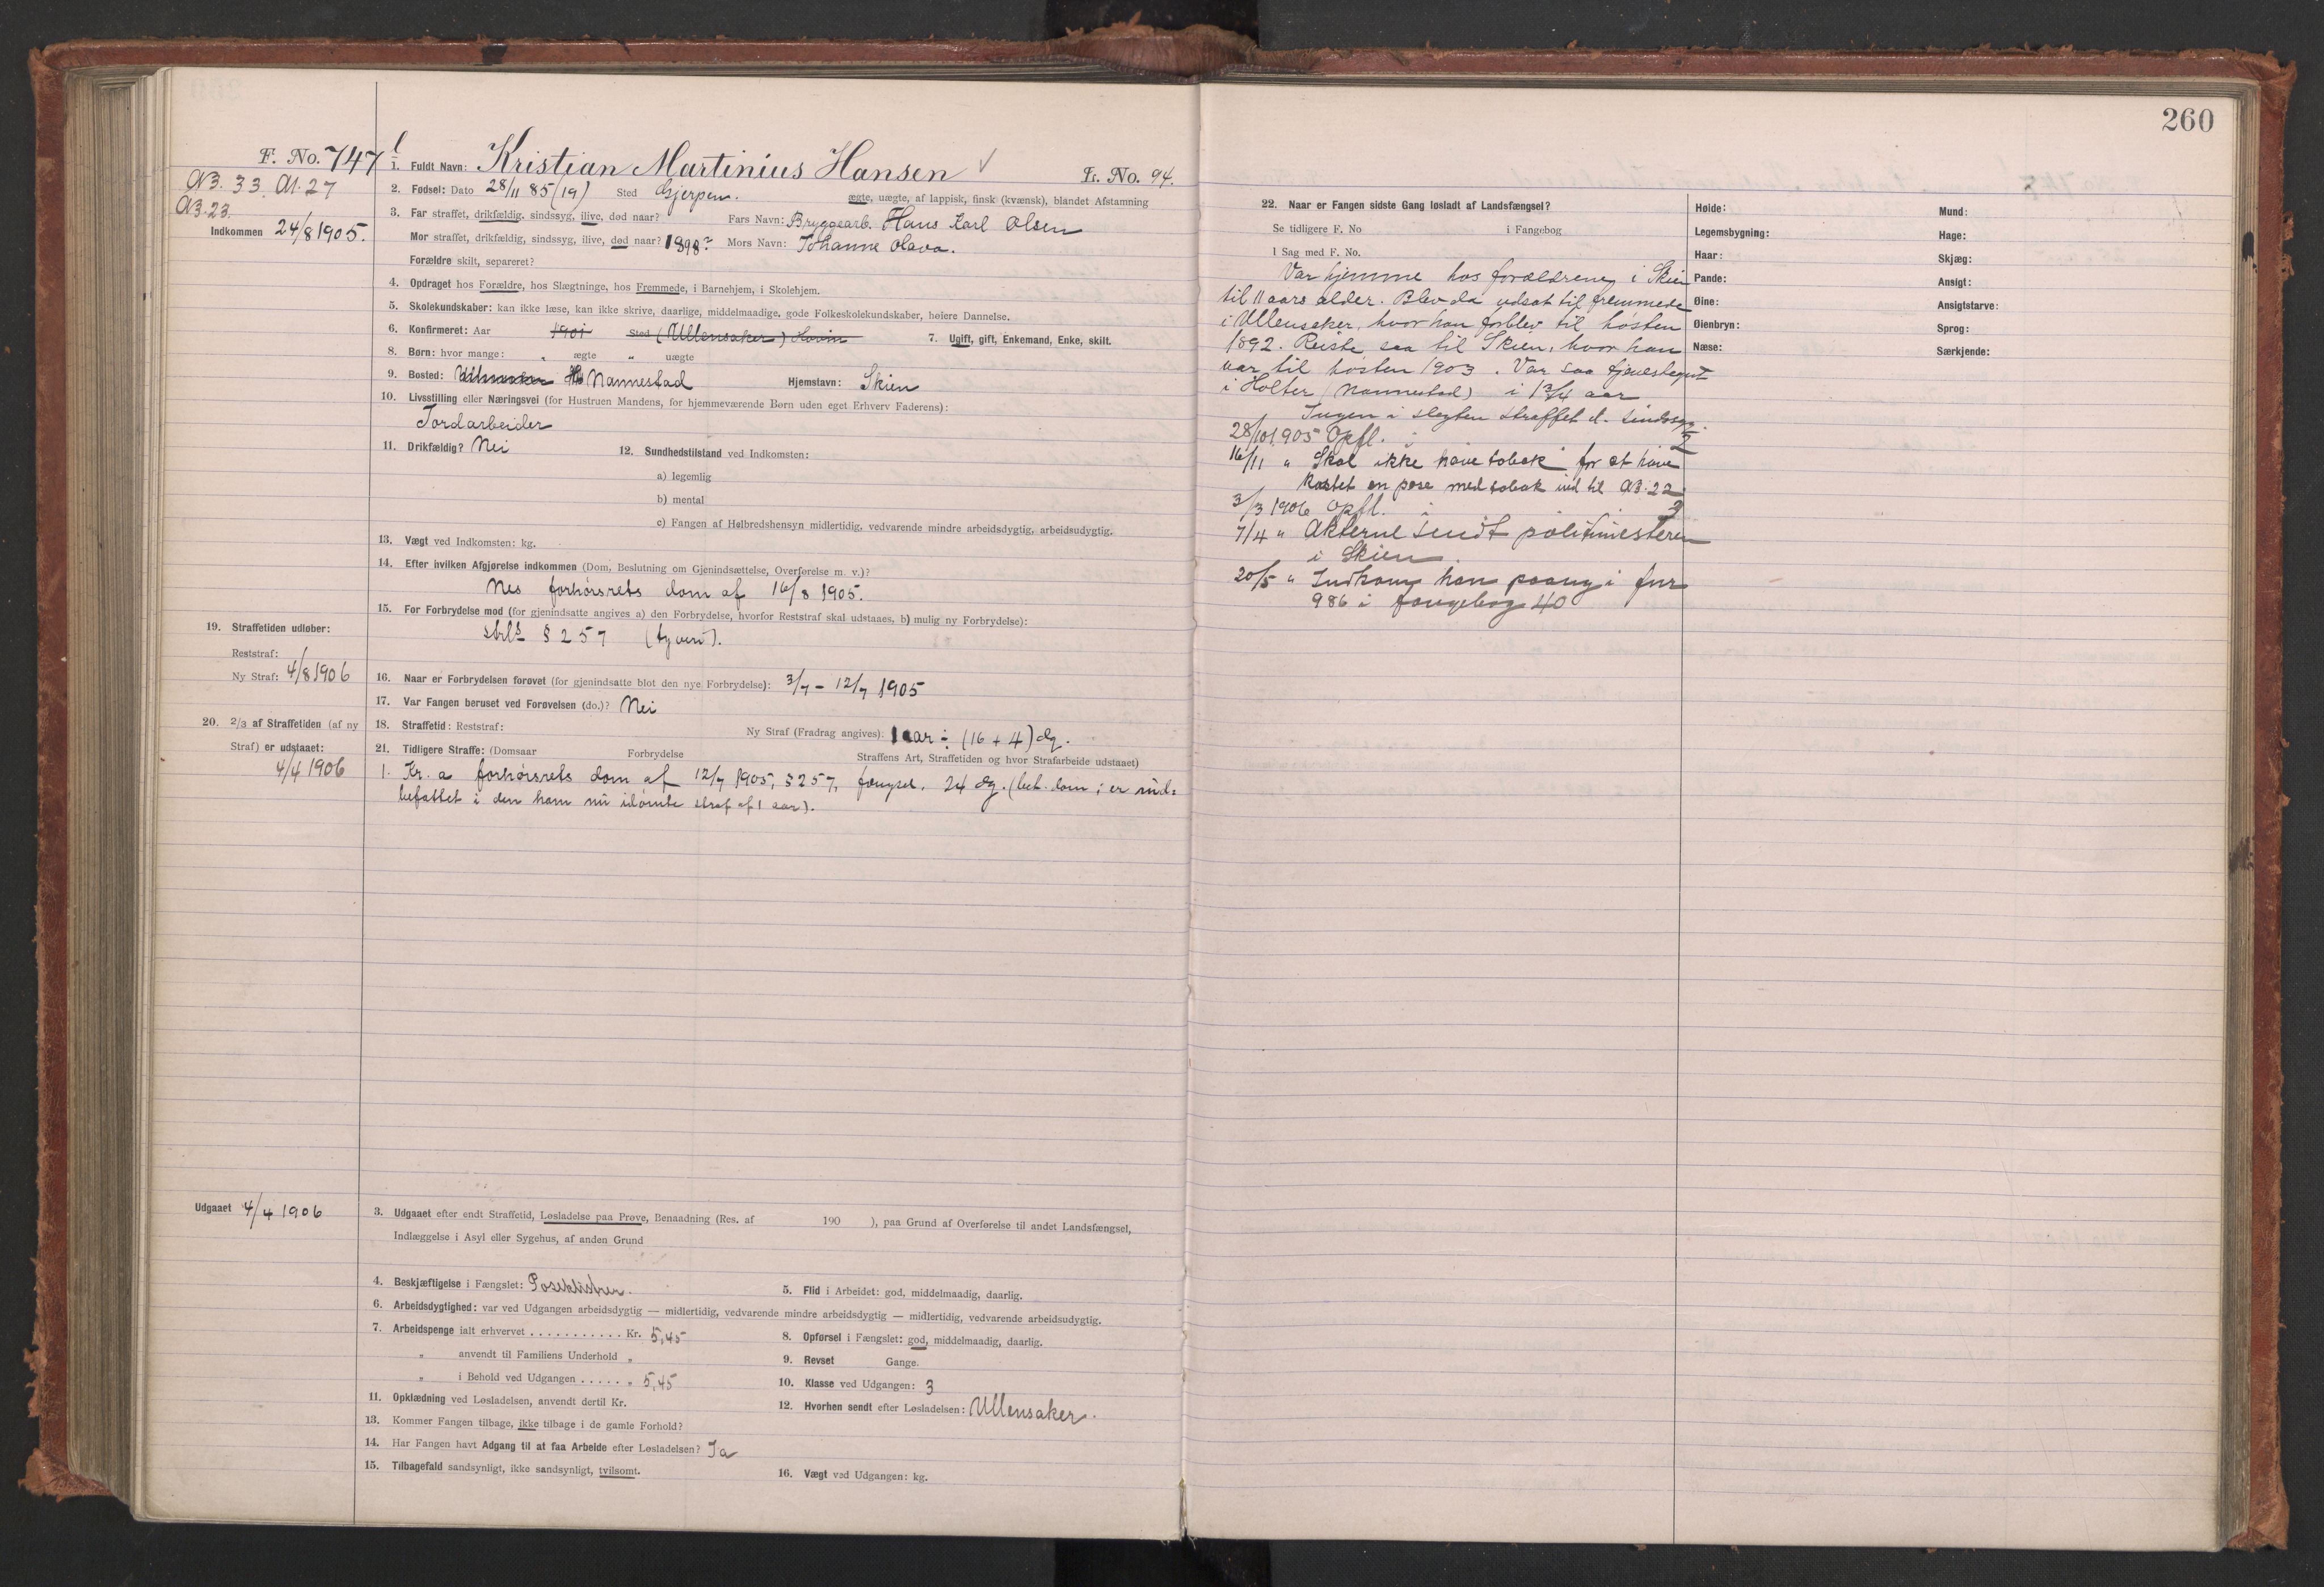 260
F. No. 747
1. Fuldt Navn: Kristian Martinius Hansen
Fr. No. 94.
A3. 33. A1. 27
A3. 23.
Indkommen 24/8 1905.
2. Fødsel: Dato 28/11 85 (19) Sted Gjerpen. ægte, uægte, af lappisk, finsk (kvænsk), blandet Afstamning
3. Far straffet, drikfældig, sindssyg, ilive, død naar? Fars Navn: Bryggearb. Hans Karl Olsen
Mor straffet, drikfældig, sindssyg, ilive, død naar? 1898? Mors Navn: Johanne Olava.
Forældre skilt, separeret?
4. Opdraget hos Forældre, hos Slægtninge, hos Fremmede, i Barnehjem, i Skolehjem.
5. Skolekundskaber: kan ikke læse, kan ikke skrive, daarlige, middelmaadige, gode Folkeskolekundskaber, høiere Dannelse.
6. Konfirmeret: Aar 1901 Sted (Ullensaker) Hovin 7. Ugift, gift, Enkemand, Enke, skilt.
8. Børn: hvor mange: „ ægte „ uægte
9. Bosted: Ullensaker Nannestad Hjemstavn: Skien
10. Livsstilling eller Næringsvei (for Hustruen Mandens, for hjemmeværende Børn uden eget Erhverv Faderens):
Jordarbeider
11. Drikfældig? Nei 12. Sundhedstilstand ved Indkomsten:
a) legemlig
b) mental
c) Fangen af Helbredshensyn midlertidig, vedvarende mindre arbeidsdygtig, arbeidsudygtig.
13. Vægt ved Indkomsten: kg.
14. Efter hvilken Afgjørelse indkommen (Dom, Beslutning om Gjenindsættelse, Overførelse m. v.)?
Nes forhørsrets dom af 16/8 1905.
15. For Forbrydelse mod (for gjenindsatte angives a) den Forbrydelse, hvorfor Reststraf skal udstaaes, b) mulig ny Forbrydelse):
strl. § 257 (tyveri).
19. Straffetiden udløber:
Reststraf:
Ny Straf: 4/8 1906
16. Naar er Forbrydelsen forøvet (for gjenindsatte blot den nye Forbrydelse): 3/7 - 12/7 1905
17. Var Fangen beruset ved Forøvelsen (do.)? Nei
20. 2/3 af Straffetiden (af ny
Straf) er udstaaet:
4/4 1906
18. Straffetid: Reststraf: Ny Straf (Fradrag angives): 1 aar ÷ (16 + 4) dg.
21. Tidligere Straffe: (Domsaar Forbrydelse Straffens Art, Straffetiden og hvor Strafarbeide udstaaet)
1. Kr.a forhørsrets dom af 12/7 1905, § 257, fængsel, 24 dg. (bet. dom; er ind-
befattet i den ham nu idømte straf af 1 aar).
Udgaaet 4/4 1906
3. Udgaaet efter endt Straffetid, Løsladelse paa Prøve, Benaadning (Res. af 190 ), paa Grund af Overførelse til andet Landsfængsel,
Indlæggelse i Asyl eller Sygehus, af anden Grund
4. Beskjæftigelse i Fængslet: Poseklistrer. 5. Flid i Arbeidet: god, middelmaadig, daarlig.
6. Arbeidsdygtighed: var ved Udgangen arbeidsdygtig — midlertidig, vedvarende mindre arbeidsdygtig — midlertidig, vedvarende arbeidsudygtig.
7. Arbeidspenge ialt erhvervet . . . . . . . . . . . Kr. 5,45 8. Opførsel i Fængslet: god, middelmaadig, daarlig.
„ anvendt til Familiens Underhold „ 9. Revset Gange.
„ i Behold ved Udgangen . . . . . „ 5,45 10. Klasse ved Udgangen: 3
11. Opklædning ved Løsladelsen, anvendt dertil Kr. 12. Hvorhen sendt efter Løsladelsen: Ullensaker.
13. Kommer Fangen tilbage, ikke tilbage i de gamle Forhold?
14. Har Fangen havt Adgang til at faa Arbeide efter Løsladelsen? Ja
15. Tilbagefald sandsynligt, ikke sandsynligt, tvilsomt. 16. Vægt ved Udgangen: kg.
22. Naar er Fangen sidste Gang løsladt af Landsfængsel?
Se tidligere F. No i Fangebog
I Sag med F. No.
Var hjemme hos forældrene i Skien
til 11 aars alder. Blev da udsat til fremmede
i Ullensaker, hvor han forblev til høsten
1892. Reiste saa til Skien, hvor han
var til høsten 1903. Var saa tjenestegut
i Holter (Nannestad) i 1 3/4 aar
Ingen i slegten straffet el. sindssyg.
28/10 1905 Opfl. i 2
16/11 „ Skal ikke have tobak for at have
kastet en pose med tobak ind til A3.22
3/3 1906 Opfl. i 3
7/4 „ Akterne sendt politimesteren
i Skien.
20/5 „ Indkom han paany i fnr
986 i fangebog 40
Høide: Mund:
Legemsbygning: Hage:
Haar: Skjæg:
Pande: Ansigt:
Øine: Ansigtstarve:
Øienbryn: Sprog:
Næse: Særkjende: